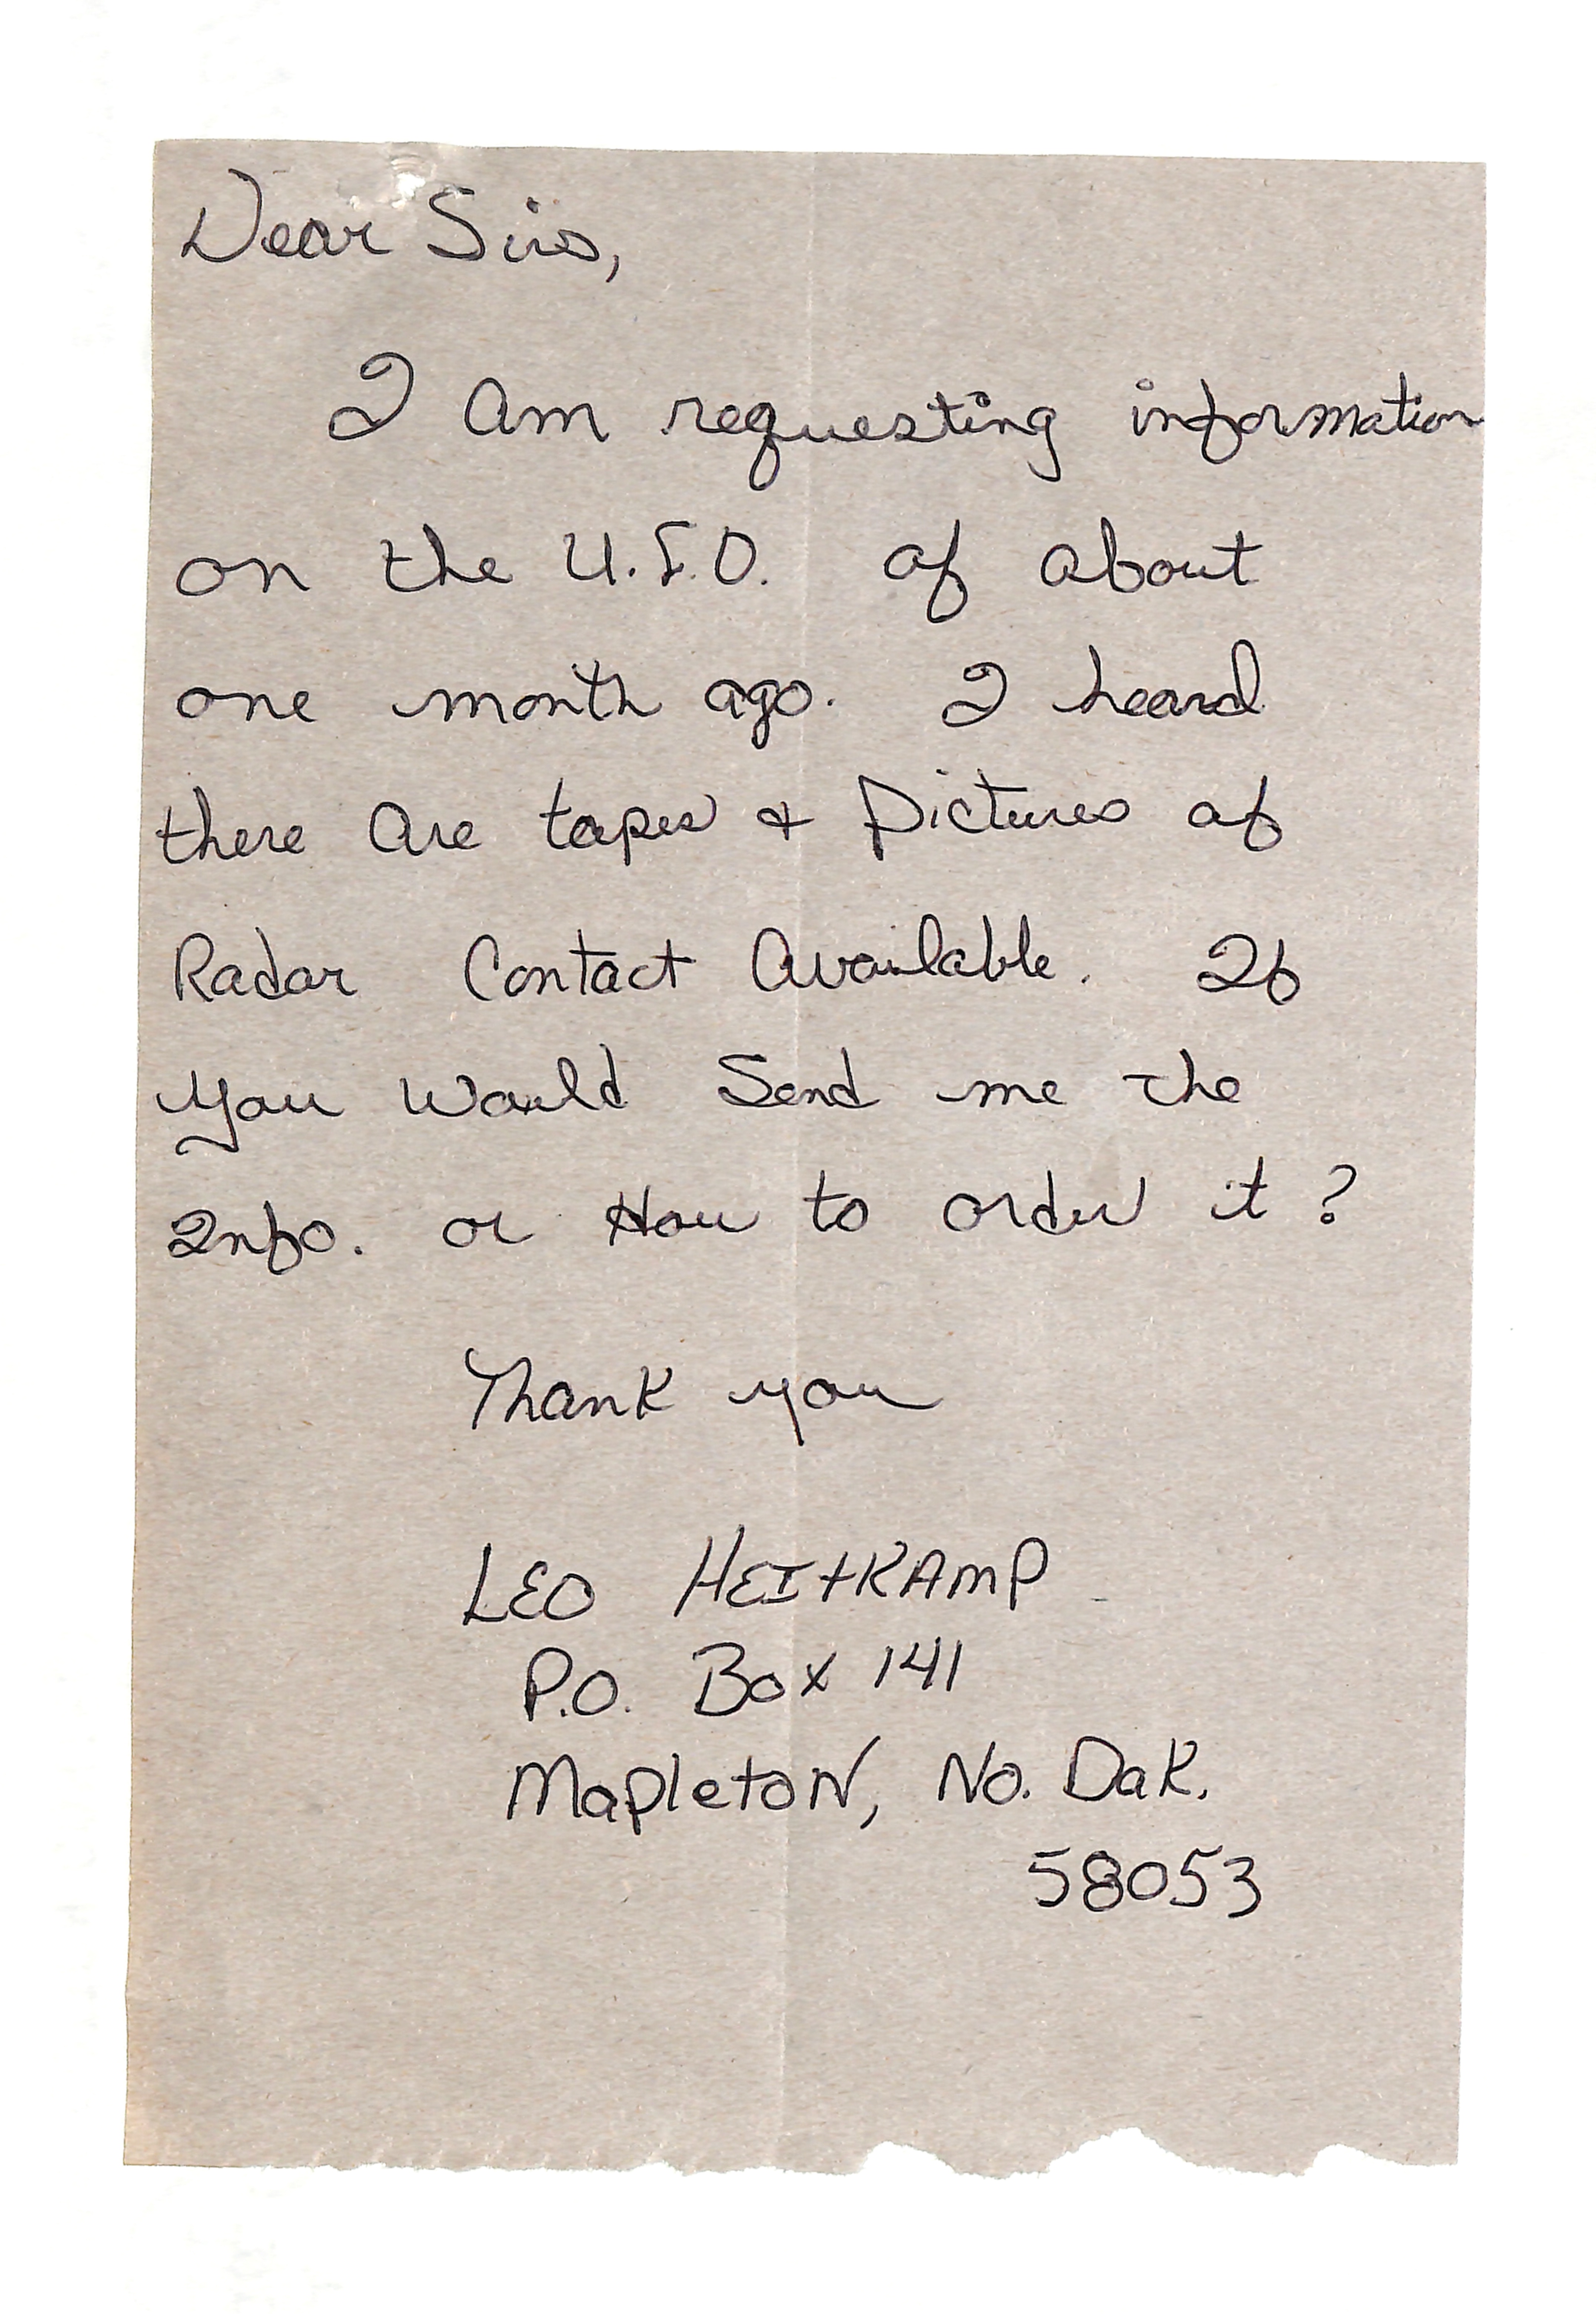 Dear Sirs,
I am requesting information
on the U.F.O. of about
one month ago. I heard
there are tapes + Pictures of
Radar Contact Available. If
you would Send me the
Info. or How to order it?
Thank you
LEO HEItKAMP
P.O. Box 141
MapletoN, No. Dak.
58053